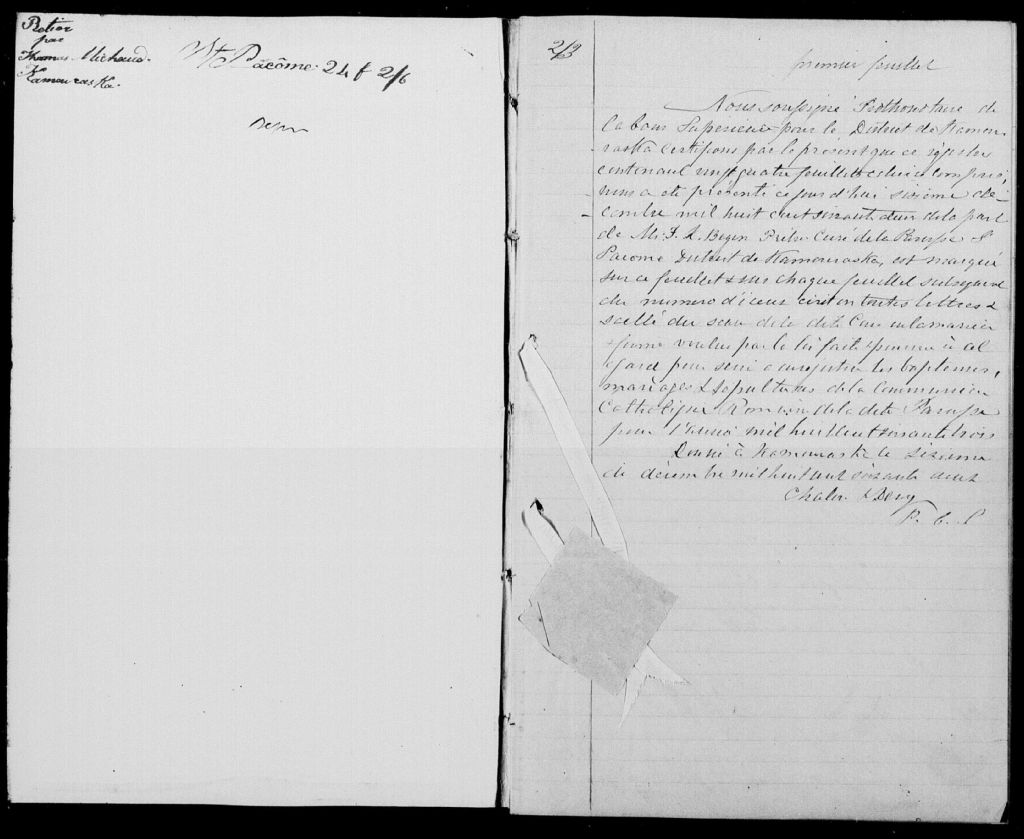 Relié
par
Thomas Michaud.
Kamouraska.
St Pacôme. 24 f 2/6
2/3
premier feuillet
Nous soussigné Prothonotaire de
la Cour Superieure pour le District de Kamou-
raska certifions par le present que ce régistre
contenant vingt quatre feuillets celui ci compris,
nous a été présenté ce jour d'hui sixième dé-
cembre mil huit cent soixante deux de la part
de Mr Begin Prêtre Curé de la Paroisse St
Pacome District de Kamouraska, est marqué
sur ce feuillet & sur chaque feuillet subsequent
du numero d'iceux écrit en toutes lettres &
scellé du sceau de la dite Cour en la manière
& forme voulue par la loi faite & pourvue à cet
égard pour servir a enregistrer les baptemes,
mariages & sepultures de la Communion
Catholique Romaine de la dite Paroisse
pour l'année mil huit cent soixante trois
Donné à Kamouraska le sixième
de décembre mil huit cent soixante deux
P. C. S